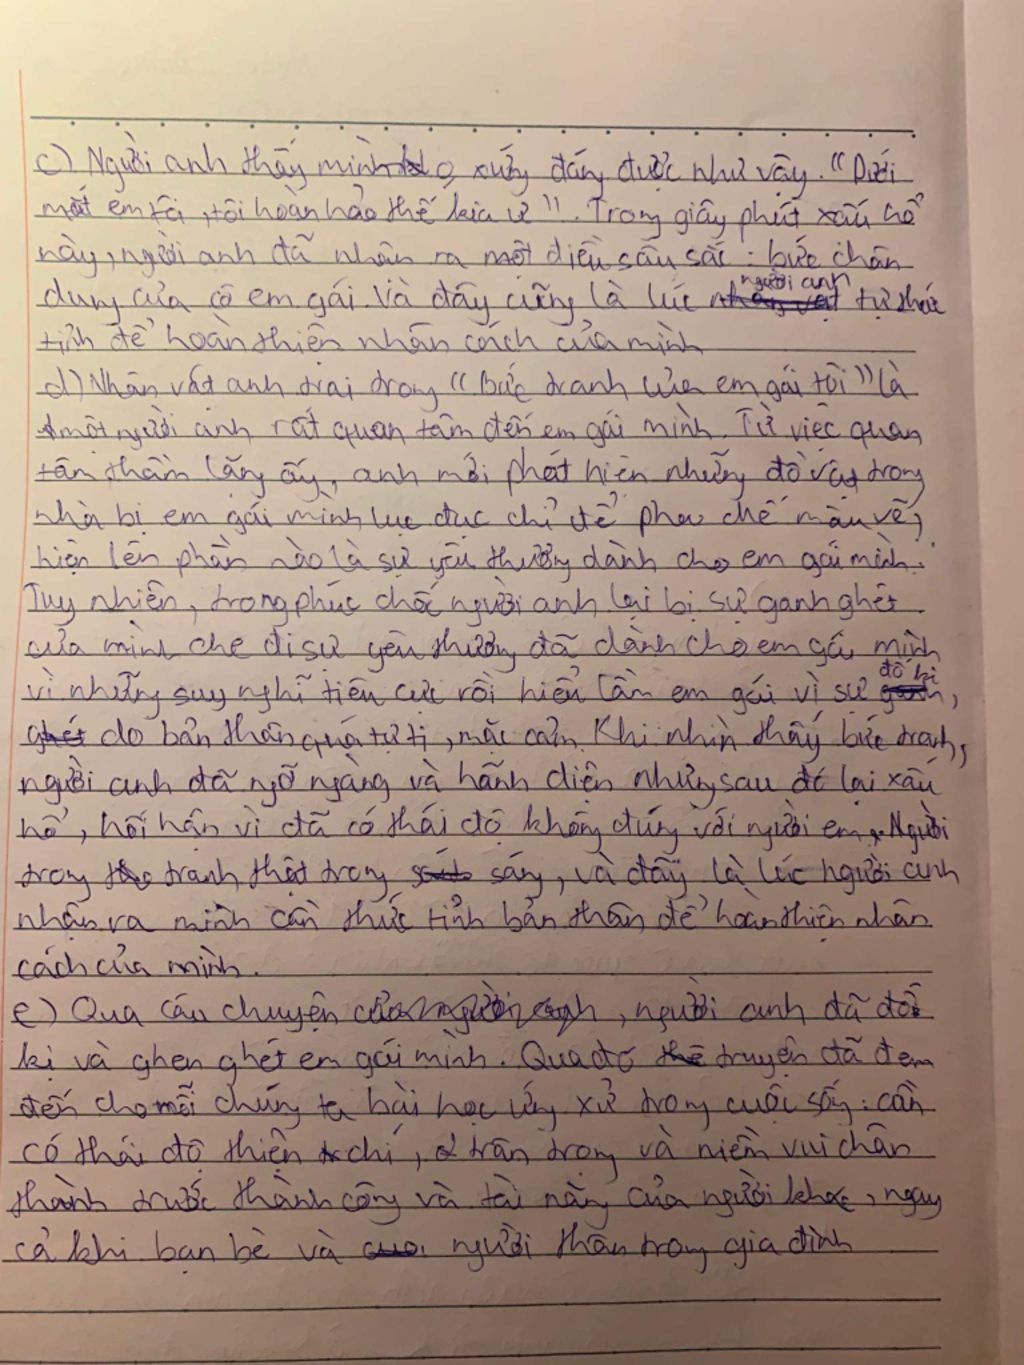 c) Người anh thấy mình o xứng đáng được như vậy. "Dưới
mắt em tôi, tôi hoàn hảo thế kia ư". Trong giây phút xấu hổ
này, người anh đã nhận ra một điều sâu sắc: bức chân
dung của cô em gái. Và đây cũng là lúc người anh tự thức
tỉnh để hoàn thiện nhân cách của mình
d) Nhân vật anh trai trong "Bức tranh của em gái tôi" là
một người anh rất quan tâm đến em gái mình. Từ việc quan
tâm thầm lặng ấy, anh mới phát hiện những đồ vật trong
nhà bị em gái mình lục đục chỉ để pha chế màu vẽ,
hiện lên phần nào là sự yêu thương dành cho em gái mình.
Tuy nhiên, trong phúc chốc người anh lại bị sự ganh ghét
của mình che đi sự yêu thương đã dành cho em gái mình
vì những suy nghĩ tiêu cực rồi hiểu lầm em gái vì sự đố kị,
do bản thân quá tự ti, mặc cảm. Khi nhìn thấy bức tranh,
người anh đã ngỡ ngàng và hãnh diện nhưng sau đó lại xấu
hổ, hối hận vì đã có thái độ không đúng với người em. Người
trong tranh thật trong sáng, và đây là lúc người anh
nhận ra mình cần thức tỉnh bản thân để hoàn thiện nhân
cách của mình.
e) Qua câu chuyện, người anh đã đố
kị và ghen ghét em gái mình. Qua đó truyện đã đem
đến cho mỗi chúng ta bài học ứng xử trong cuộc sống: cần
có thái độ thiện chí, trân trọng và niềm vui chân
thành trước thành công và tài năng của người khác, ngay
cả khi bạn bè và người thân trong gia đình